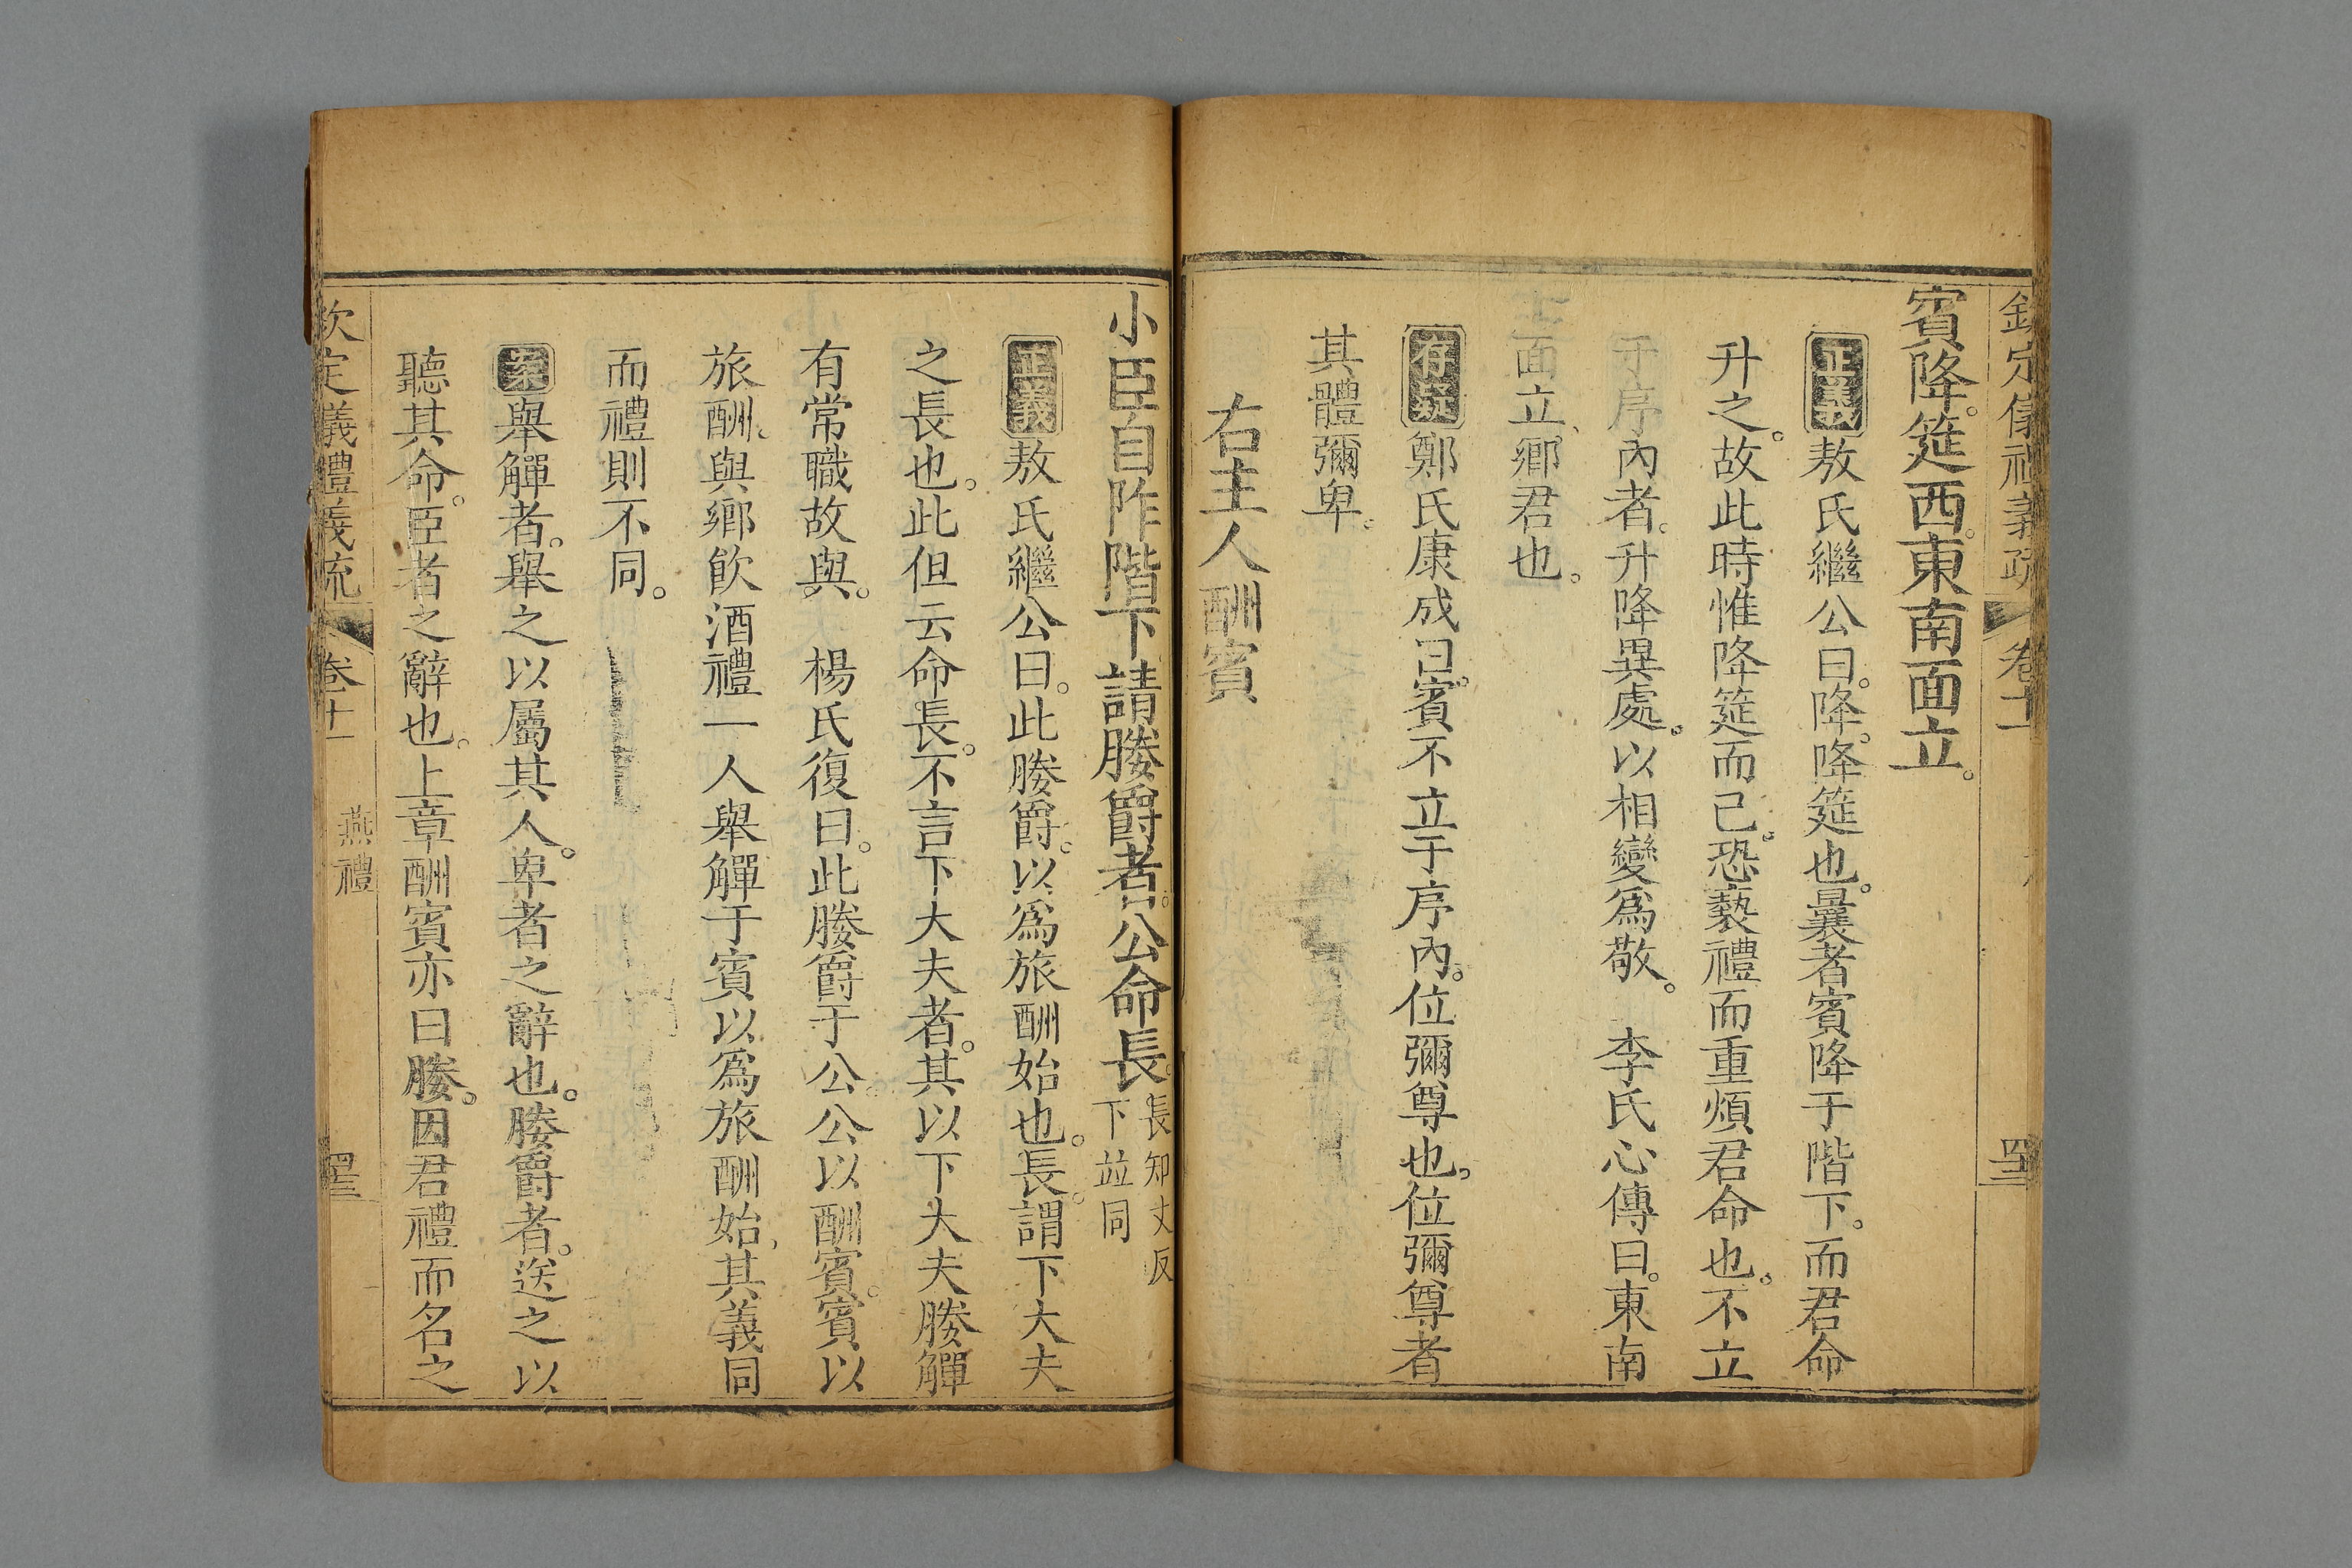 欽定儀禮義疏 卷十一 四十三
賓降。筵西。東南面立。
正義 敖氏繼公曰。降。降筵也。曩者賓降于階下。而君命
升之。故此時惟降筵而己。恐褻禮而重煩君命也。不立
于序內者。升降異處。以相變爲敬。 李氏心傳曰。東南
面立、鄉君也。
存疑 鄭氏康成曰。賓不立于序內。位彌尊也。位彌尊者
其體彌卑。
右主人酬賓
小臣自阼階下請媵爵者。公命長。長知丈反
下並同
正義 敖氏繼公曰。此媵爵。以爲旅酬始也。長。謂下大夫
之長也。此但云命長。不言下大夫者。其以下大夫媵觶
有常職故與。 楊氏復曰。此媵爵于公。公以酬賓。賓以
旅酬、與鄉飲酒禮一人舉觶于賓以爲旅酬始、其義同
而禮則不同。
案 舉觶者。舉之以屬其人。卑者之辭也。媵爵者。送之以
聽其命。臣者之辭也。上章酬賓亦曰媵。因君禮而名之
欽定儀禮義疏 卷十一 燕禮 四十三